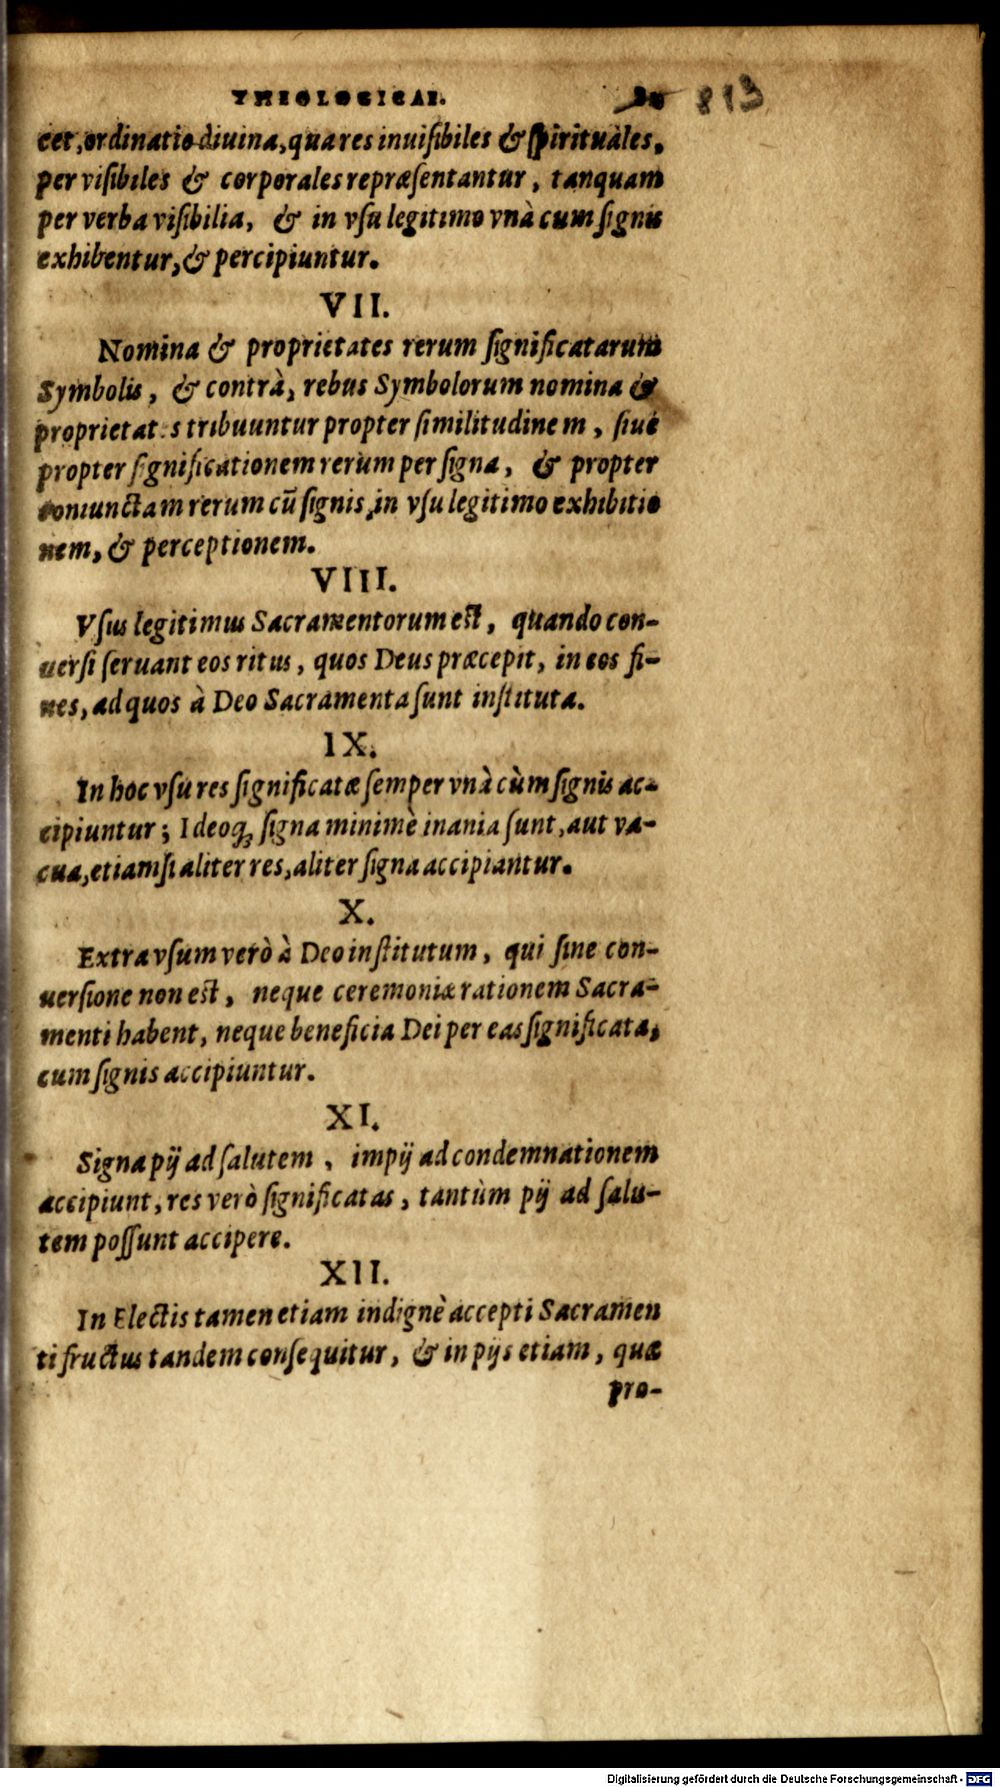 THEOLOGICAE. 813
cet, ordinatio diuina, qua res inuiſibiles & ſpirituales,
per viſibiles & corporales repræſentantur, tanquam
per verba viſibilia, & in vſu legitimo vnà cum ſignis
exhibentur, & percipiuntur.
VII.
Nomina & proprietates rerum ſignificatarum
Symbolis, & contrà, rebus Symbolorum nomina &
proprietates tribuuntur propter ſimilitudinem, ſiue
propter ſignificationem rerum per ſigna, & propter
coniunctam rerum cũ ſignis, in vſu legitimo exhibitio
nem, & perceptionem.
VIII.
Vſus legitimus Sacramentorum eſt, quando con-
uerſi ſeruant eos ritus, quos Deus præcepit, in eos fi-
nes, ad quos à Deo Sacramenta ſunt inſtituta.
IX.
In hoc vſu res ſignificatæ ſemper vnà cùm ſignis ac-
cipiuntur; Ideoq́; ſigna minimè inania ſunt, aut va-
cua, etiamſi aliter res, aliter ſigna accipiantur.
X.
Extra vſum verò à Deo inſtitutum, qui ſine con-
uerſione non eſt, neque ceremoniæ rationem Sacra-
menti habent, neque beneficia Dei per eas ſignificata,
cum ſignis accipiuntur.
XI.
Signa pij ad ſalutem, impij ad condemnationem
accipiunt, res verò ſignificatas, tantùm pij ad ſalu-
tem poſſunt accipere.
XII.
In Electis tamen etiam indignè accepti Sacramen
ti fructus tandem conſequitur, & in pijs etiam, quæ
pro-
Digitalisierung gefördert durch die Deutsche Forschungsgemeinschaft - DFG